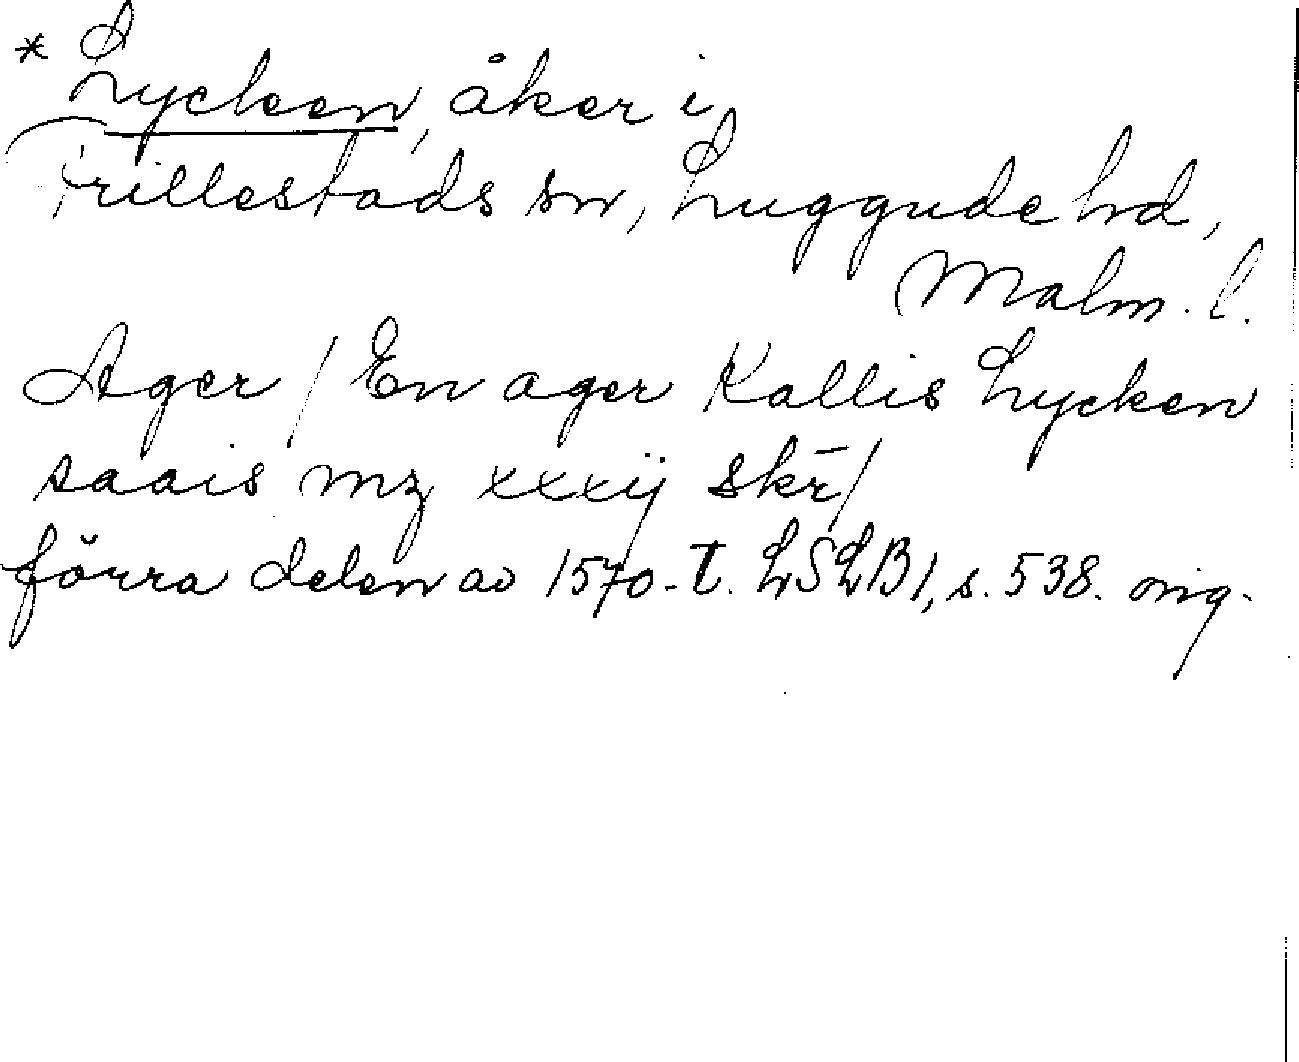 * Lycken, åker i
Frillestads sn, Luggude hd,
Malm. l.
Ager / En ager Kallis Lycken
saais mz xxxij skr̄ /
förra delen av 1570-t. LSLB1, s. 538. orig.